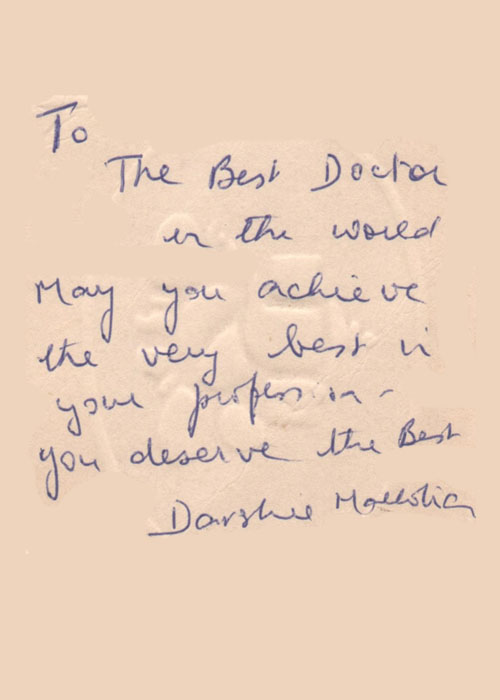 To
The Best Doctor
in the world
May you achieve
the very best in
your profession -
you deserve the Best